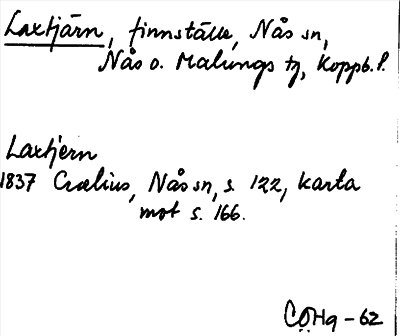 Laxtjärn, finnställe, Nås sn,
Nås o. Malungs tg, Koppb. l.
Laxtjern
1837 Crælius, Nås sn, s. 122, karta
mot s. 166.
CÖHg - 62